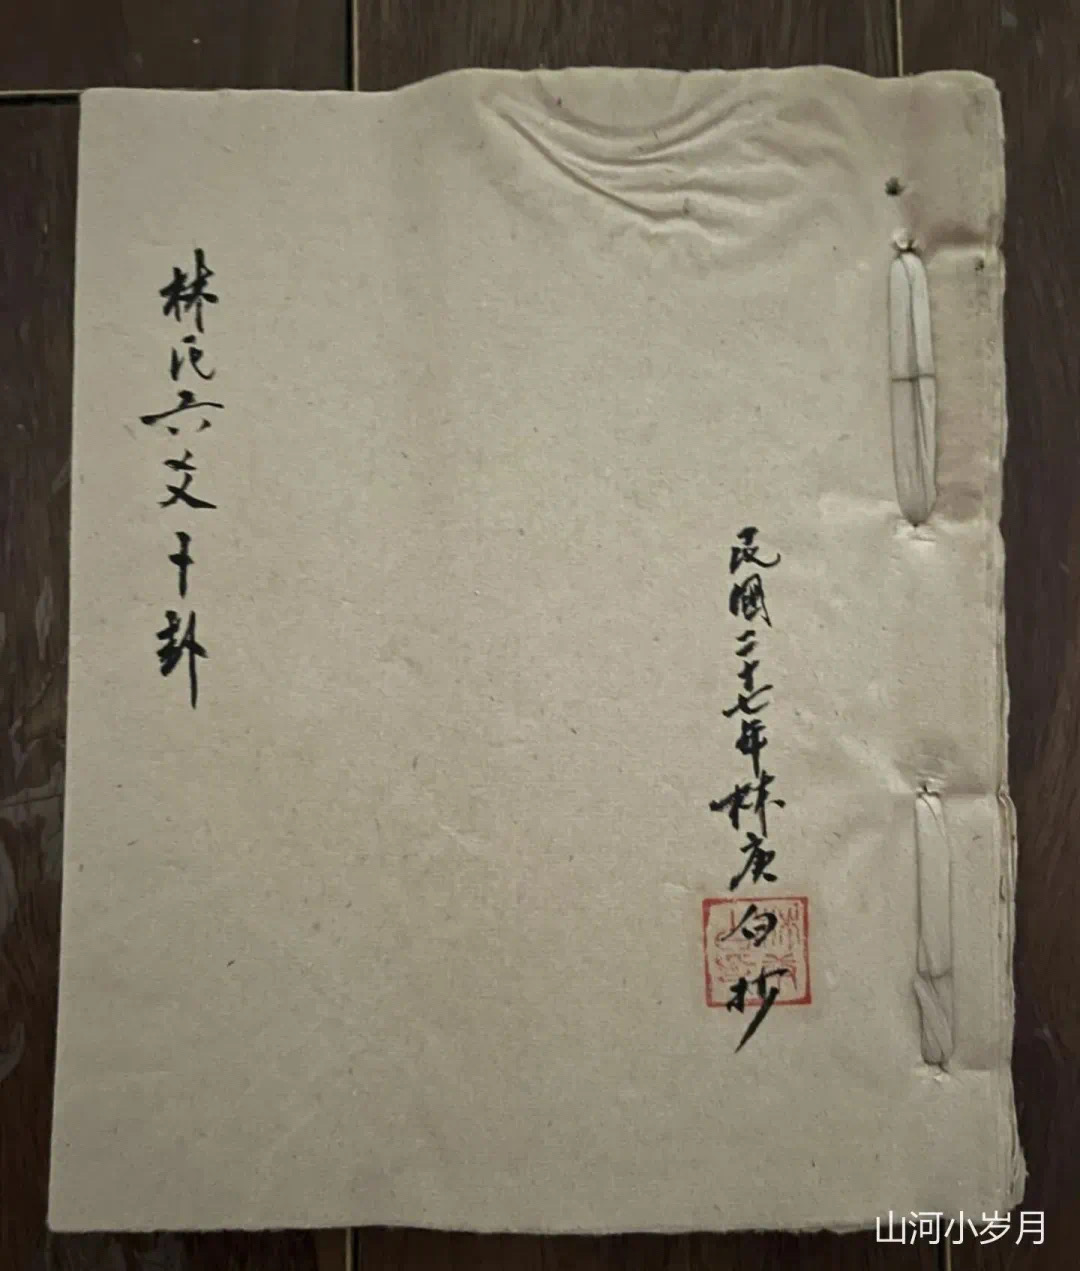 林氏六爻十卦
民國二十七年林庚白抄
山河小岁月